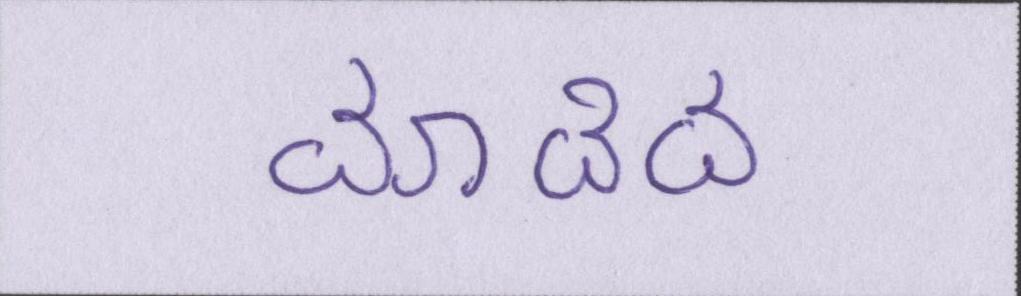 ಮಾಡಿದ